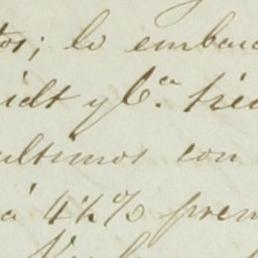 tos; lo embar
idt y Ca. tie
ultimos con
á 4½% prem